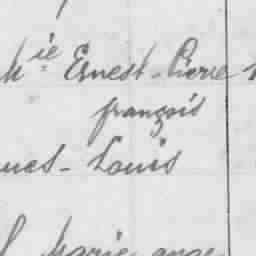 Mie Ernest-Pierre
françois
ques-Louis
Marie ange